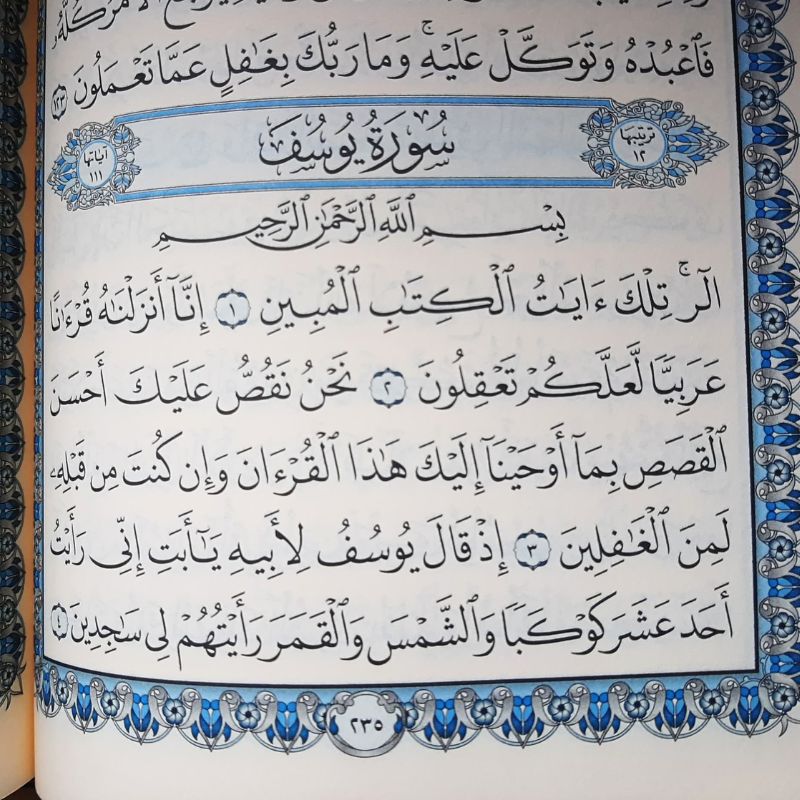 فَٱعۡبُدۡهُ وَتَوَكَّلۡ عَلَيۡهِۚ وَمَا رَبُّكَ بِغَٰفِلٍ عَمَّا تَعۡمَلُونَ ١٢٣
ترتيبها ١٢
سُورَةُ يُوسُفَ
آياتها ١١١
بِسۡمِ ٱللَّهِ ٱلرَّحۡمَٰنِ ٱلرَّحِيمِ
الٓرۚ تِلۡكَ ءَايَٰتُ ٱلۡكِتَٰبِ ٱلۡمُبِينِ ١ إِنَّآ أَنزَلۡنَٰهُ قُرۡءَٰنًا
عَرَبِيّٗا لَّعَلَّكُمۡ تَعۡقِلُونَ ٢ نَحۡنُ نَقُصُّ عَلَيۡكَ أَحۡسَنَ
ٱلۡقَصَصِ بِمَآ أَوۡحَيۡنَآ إِلَيۡكَ هَٰذَا ٱلۡقُرۡءَانَ وَإِن كُنتَ مِن قَبۡلِهِۦ
لَمِنَ ٱلۡغَٰفِلِينَ ٣ إِذۡ قَالَ يُوسُفُ لِأَبِيهِ يَٰٓأَبَتِ إِنِّي رَأَيۡتُ
أَحَدَ عَشَرَ كَوۡكَبٗا وَٱلشَّمۡسَ وَٱلۡقَمَرَ رَأَيۡتُهُمۡ لِي سَٰجِدِينَ ٤
٢٣٥